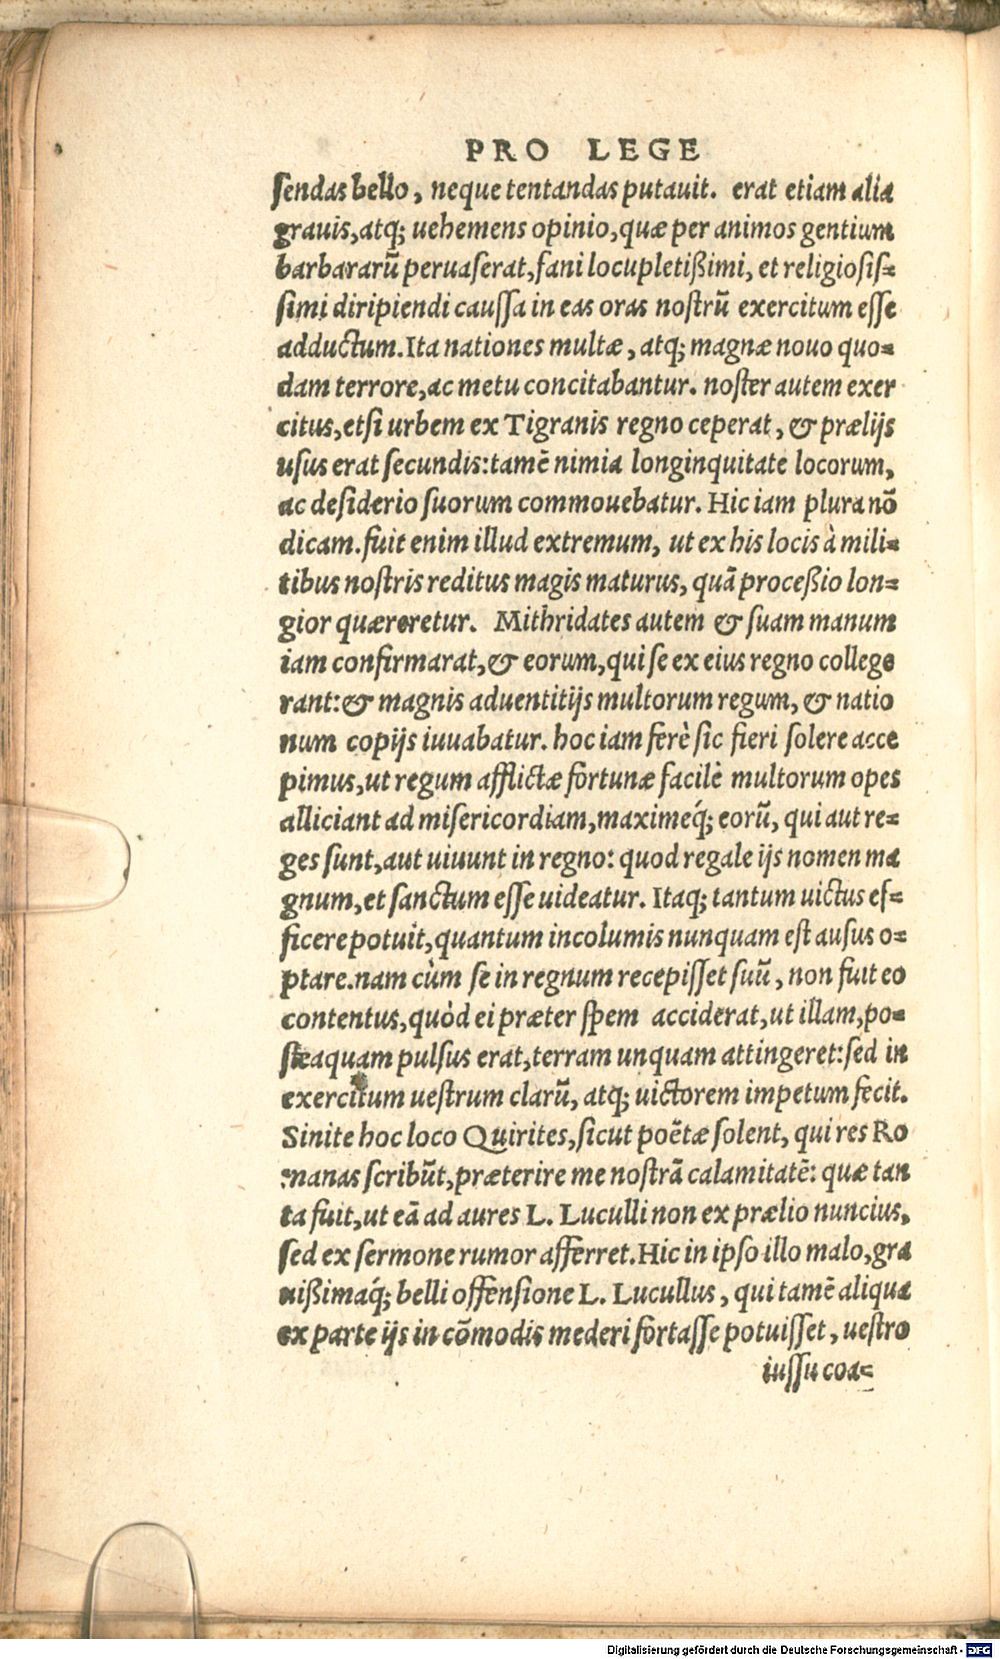 PRO LEGE
sendas bello, neque tentandas putauit. erat etiam alia
grauis, atq; uehemens opinio, quæ per animos gentium
barbararū peruaserat, fani locupletißimi, et religiosis=
simi diripiendi caussa in eas oras nostrū exercitum esse
adductum. Ita nationes multæ, atq; magnæ nouo quo=
dam terrore, ac metu concitabantur. noster autem exer
citus, etsi urbem ex Tigranis regno ceperat, & prælijs
usus erat secundis: tamē nimia longinquitate locorum,
ac desiderio suorum commouebatur. Hic iam plura nō
dicam. fuit enim illud extremum, ut ex his locis à mili=
tibus nostris reditus magis maturus, quā proceßio lon=
gior quæreretur. Mithridates autem & suam manum
iam confirmarat, & eorum, qui se ex eius regno college
rant: & magnis aduentitijs multorum regum, & natio
num copijs iuuabatur. hoc iam ferè sic fieri solere acce
pimus, ut regum afflictæ fortunæ facilè multorum opes
alliciant ad misericordiam, maximeq́; eorū, qui aut re=
ges sunt, aut uiuunt in regno: quod regale ijs nomen ma
gnum, et sanctum esse uideatur. Itaq; tantum uictus ef=
ficere potuit, quantum incolumis nunquam est ausus o=
ptare. nam cùm se in regnum recepisset suū, non fuit eo
contentus, quòd ei præter spem acciderat, ut illam, po=
steaquam pulsus erat, terram unquam attingeret: sed in
exercitum uestrum clarū, atq; uictorem impetum fecit.
Sinite hoc loco Quirites, sicut poëtæ solent, qui res Ro
manas scribūt, præterire me nostrā calamitatē: quæ tan
ta fuit, ut eā ad aures L. Luculli non ex prælio nuncius,
sed ex sermone rumor afferret. Hic in ipso illo malo, gra
uißimaq́; belli offensione L. Lucullus, qui tamē aliqua
ex parte ijs in cōmodis mederi fortasse potuisset, uestro
iussu coa=
Digitalisierung gefördert durch die Deutsche Forschungsgemeinschaft - DFG